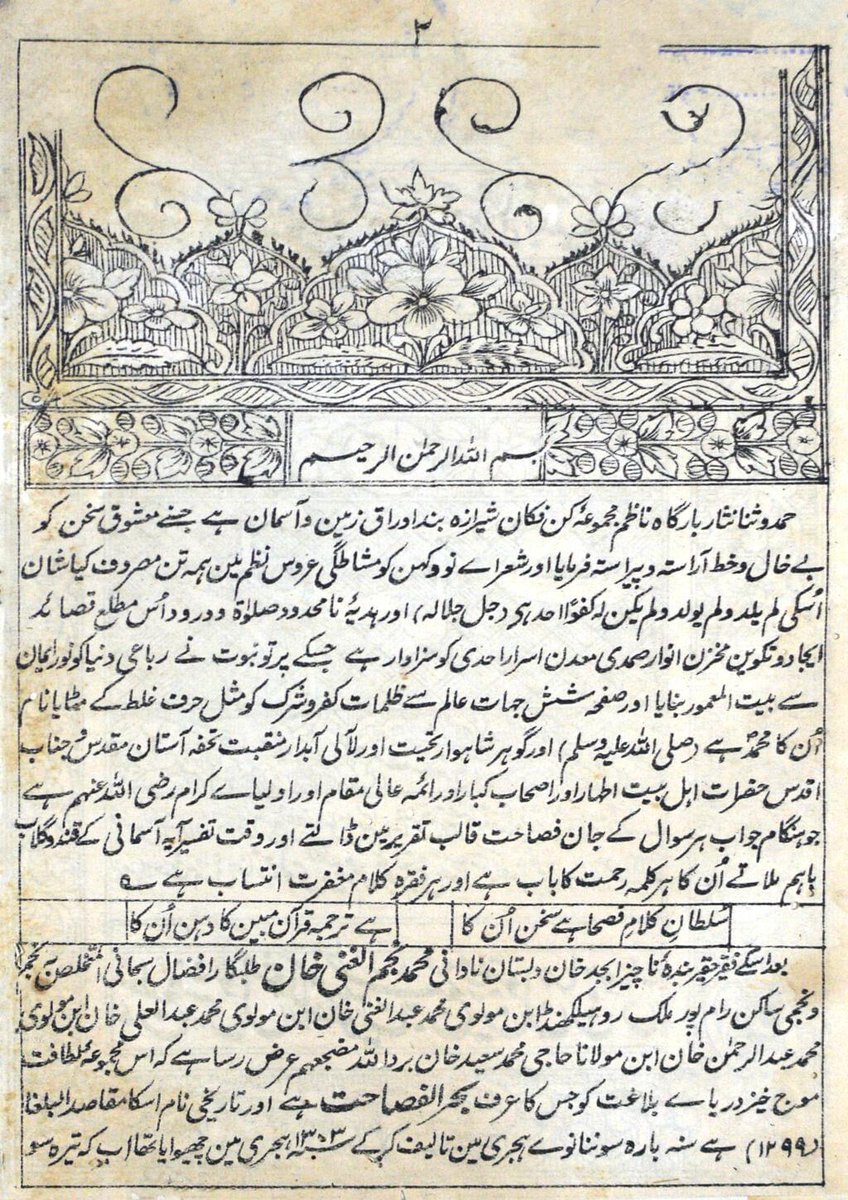 ۲
بسم اللہ الرحمٰن الرحیم
حمد وثنا نثار بارگاہ ناظم مجموعۂ کن فکان شیرازہ بند اوراق زمین و آسمان ہے جسنے معشوق سخن کو
بے خال و خط آراستہ و پیراستہ فرمایا اور شعراے نو و کہن کو مشاطگی عروس نظم مین ہمہ تن مصروف کیا شان
اُسکی لم یلد ولم یولد ولم یکن لہ کفوًا احد ہی (جل جلالہ) اور ہدیۂ نا محدود صلوٰۃ و درود اُس مطلع قصائد
ایجاد و تکوین مخزن انوار صمدی معدن اسرار احدی کو سزاوار ہے جسکے پرتو نبوت نے رباعی دنیا کو نور ایمان
سے بیت المعمور بنایا اور صفحہ شش جہات عالم سے ظلمات کفر و شرک کو مثل حرف غلط کے مٹایا نام
اُن کا محمدؐ ہے (صلی اللہ علیہ وسلم) اور گوہر شاہوار تحیت اور لآلی آبدار منقبت تحفہ آستان مقدس جناب
اقدس حضرات اہل بیت اطہار اور اصحاب کبار اور ائمہ عالی مقام اور اولیاے کرام رضی اللہ عنہم ہے
جو ہنگام جواب ہر سوال کے جان فصاحت قالب تقریر مین ڈالتے اور وقت تفسیر آیہ آسمانی کے قند و گلاب
باہم ملاتے اُن کا ہر کلمہ رحمت کا باب ہے اور ہر فقرہ کلام مغفرت انتساب ہے ؎
سُلطانِ کلامِ فصحا ہے سخن اُن کا ہے ترجمہ قرآن مبین کا دہن اُن کا
بعد اسکے فقیر حقیر بندۂ ناچیز ابجد خوان دبستان نادانی محمد نجم الغنی خان طلبگار افضال سبحانی المتخلص بہ نجم
و نجمی ساکن رام پور ملک روہیلکھنڈ ابن مولوی محمد عبد الغنی خان ابن مولوی محمد عبد العلی خان ابن مولوی
محمد عبد الرحمٰن خان ابن مولانا حاجی محمد سعید خان برد اللہ مضجعہم عرض رسا ہے کہ اس مجموعۂ لطافت
موج خیز دریاے بلاغت کو جس کا عرف بحر الفصاحت ہے اور تاریخی نام اسکا مقاصد البلغا
(۱۲۹۹) ہے سنہ بارہ سو ننانوے ہجری مین تالیف کر کے سنہ ۱۳۰۳ ہجری مین چھپوایا تھا اب کہ تیرہ سو